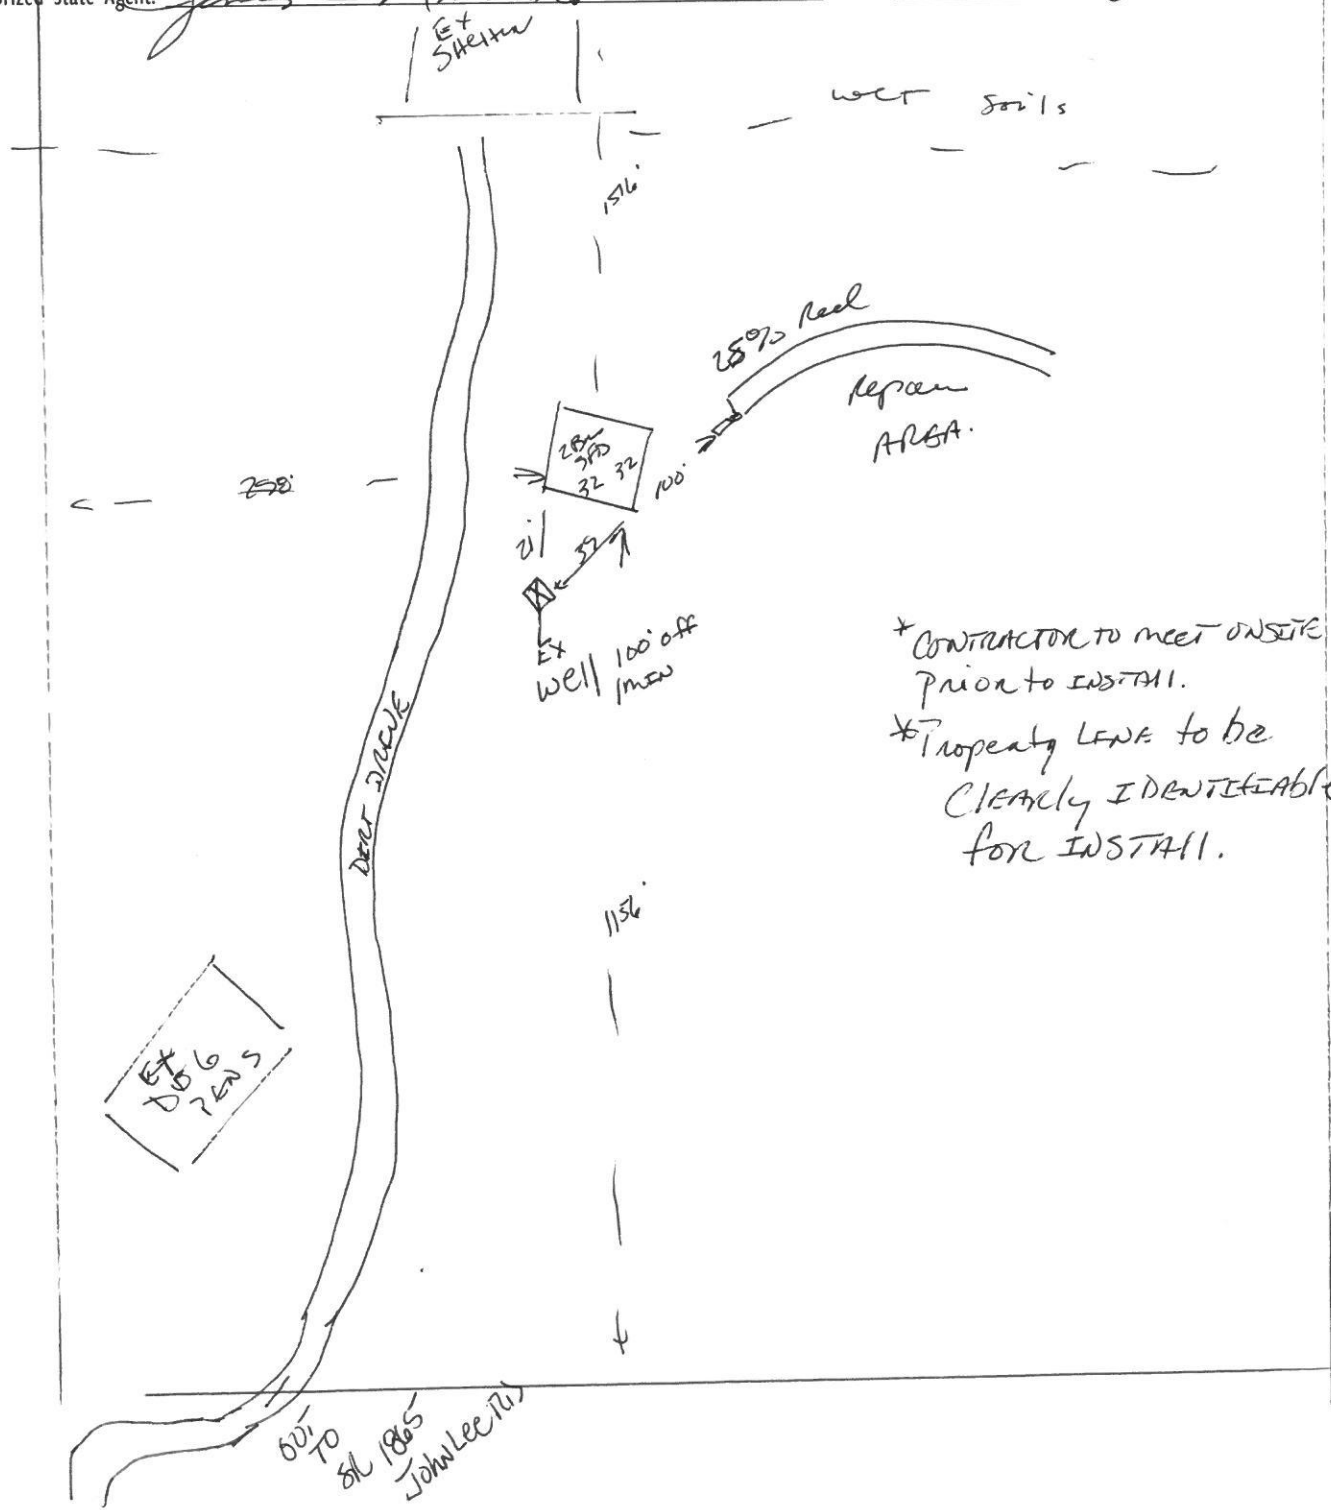 State Agent:
EX
SHelter
WET Soils
25% Red
Repair
AREA.
2Bm
SFD
32 32
100'
EX
Well 100' off
min
DIRT DRIVE
* CONTRACTOR TO meet ONSITE
Prior to INSTAll.
* Property LINE to be
ClEARly IDENTIFIABlE
for INSTAll.
1156'
EX
DOG
PENS
OUT
TO
SR 1865
JOHN LEE RD